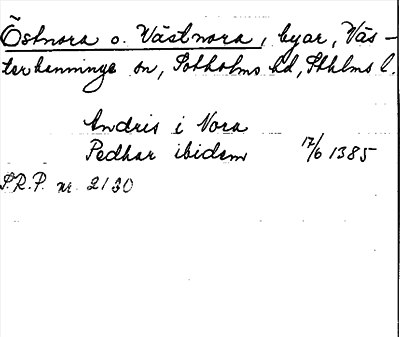 Östnora o. Västnora, byar, Väs-
terhanninge sn, Sotholms hd, Sthlms l.
Andris i Nora
Pedhar ibidem 17/6 1385
S.R.P. nr 2130